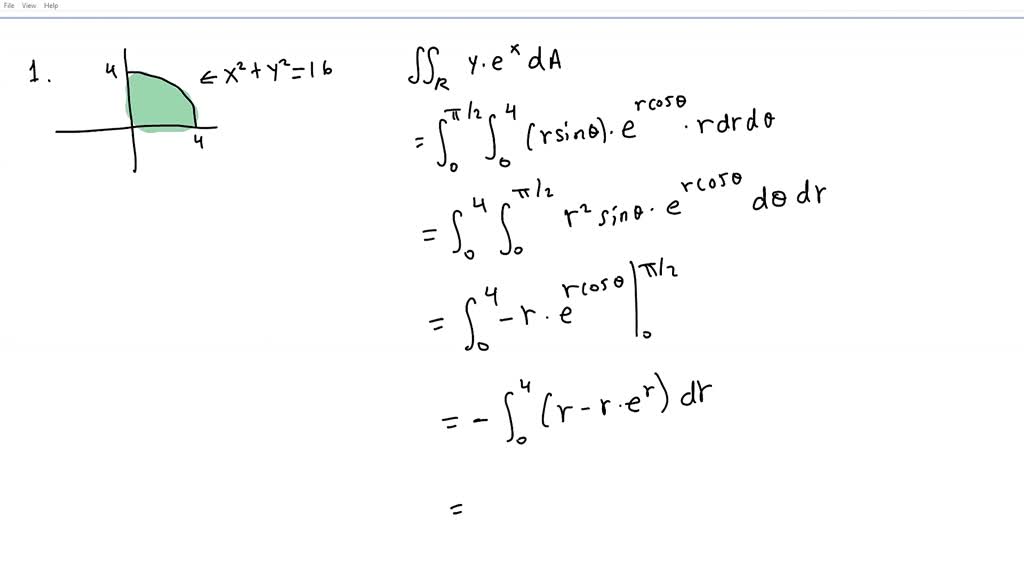 File View Help
1.
4
← x² + y² = 16
4
∬_R y·e^x dA
= ∫_0^{π/2} ∫_0^4 (r sinθ)·e^{r cosθ} · r dr dθ
= ∫_0^4 ∫_0^{π/2} r² sinθ · e^{r cosθ} dθ dr
= ∫_0^4 -r · e^{r cosθ} |_0^{π/2}
= - ∫_0^4 (r - r·e^r) dr
=